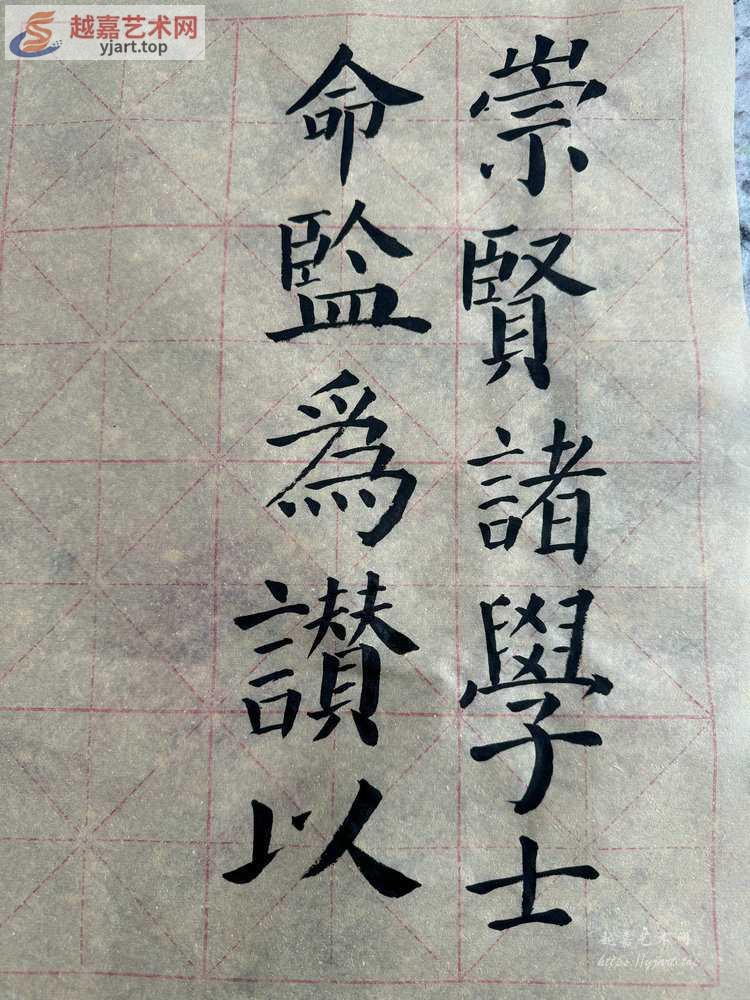 越嘉艺术网
yjart.top
崇賢諸學士
命監為讃以
越嘉艺术网
https://yjart.top